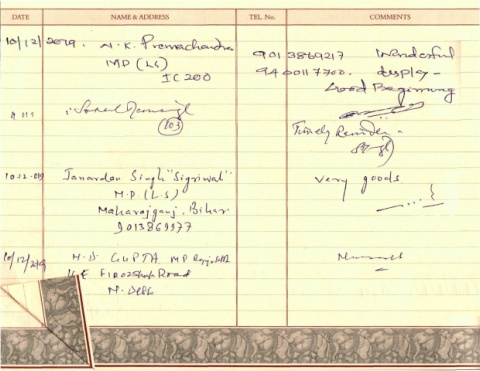 DATE NAME & ADDRESS TEL. No. COMMENTS
10/12/2019. N. K. Premachandran 9013869217 Wonderful
MP (LS) 9400117700. display -
IC 200 Good Beginning
103
Timely Reminder -
10.12.019 Janardan Singh "Sigriwal" very goods
M.P (L.S)
Maharajganj, Bihar
9013869977
10/12/2019 GUPTA MP
Firozshah Road
N. Delhi